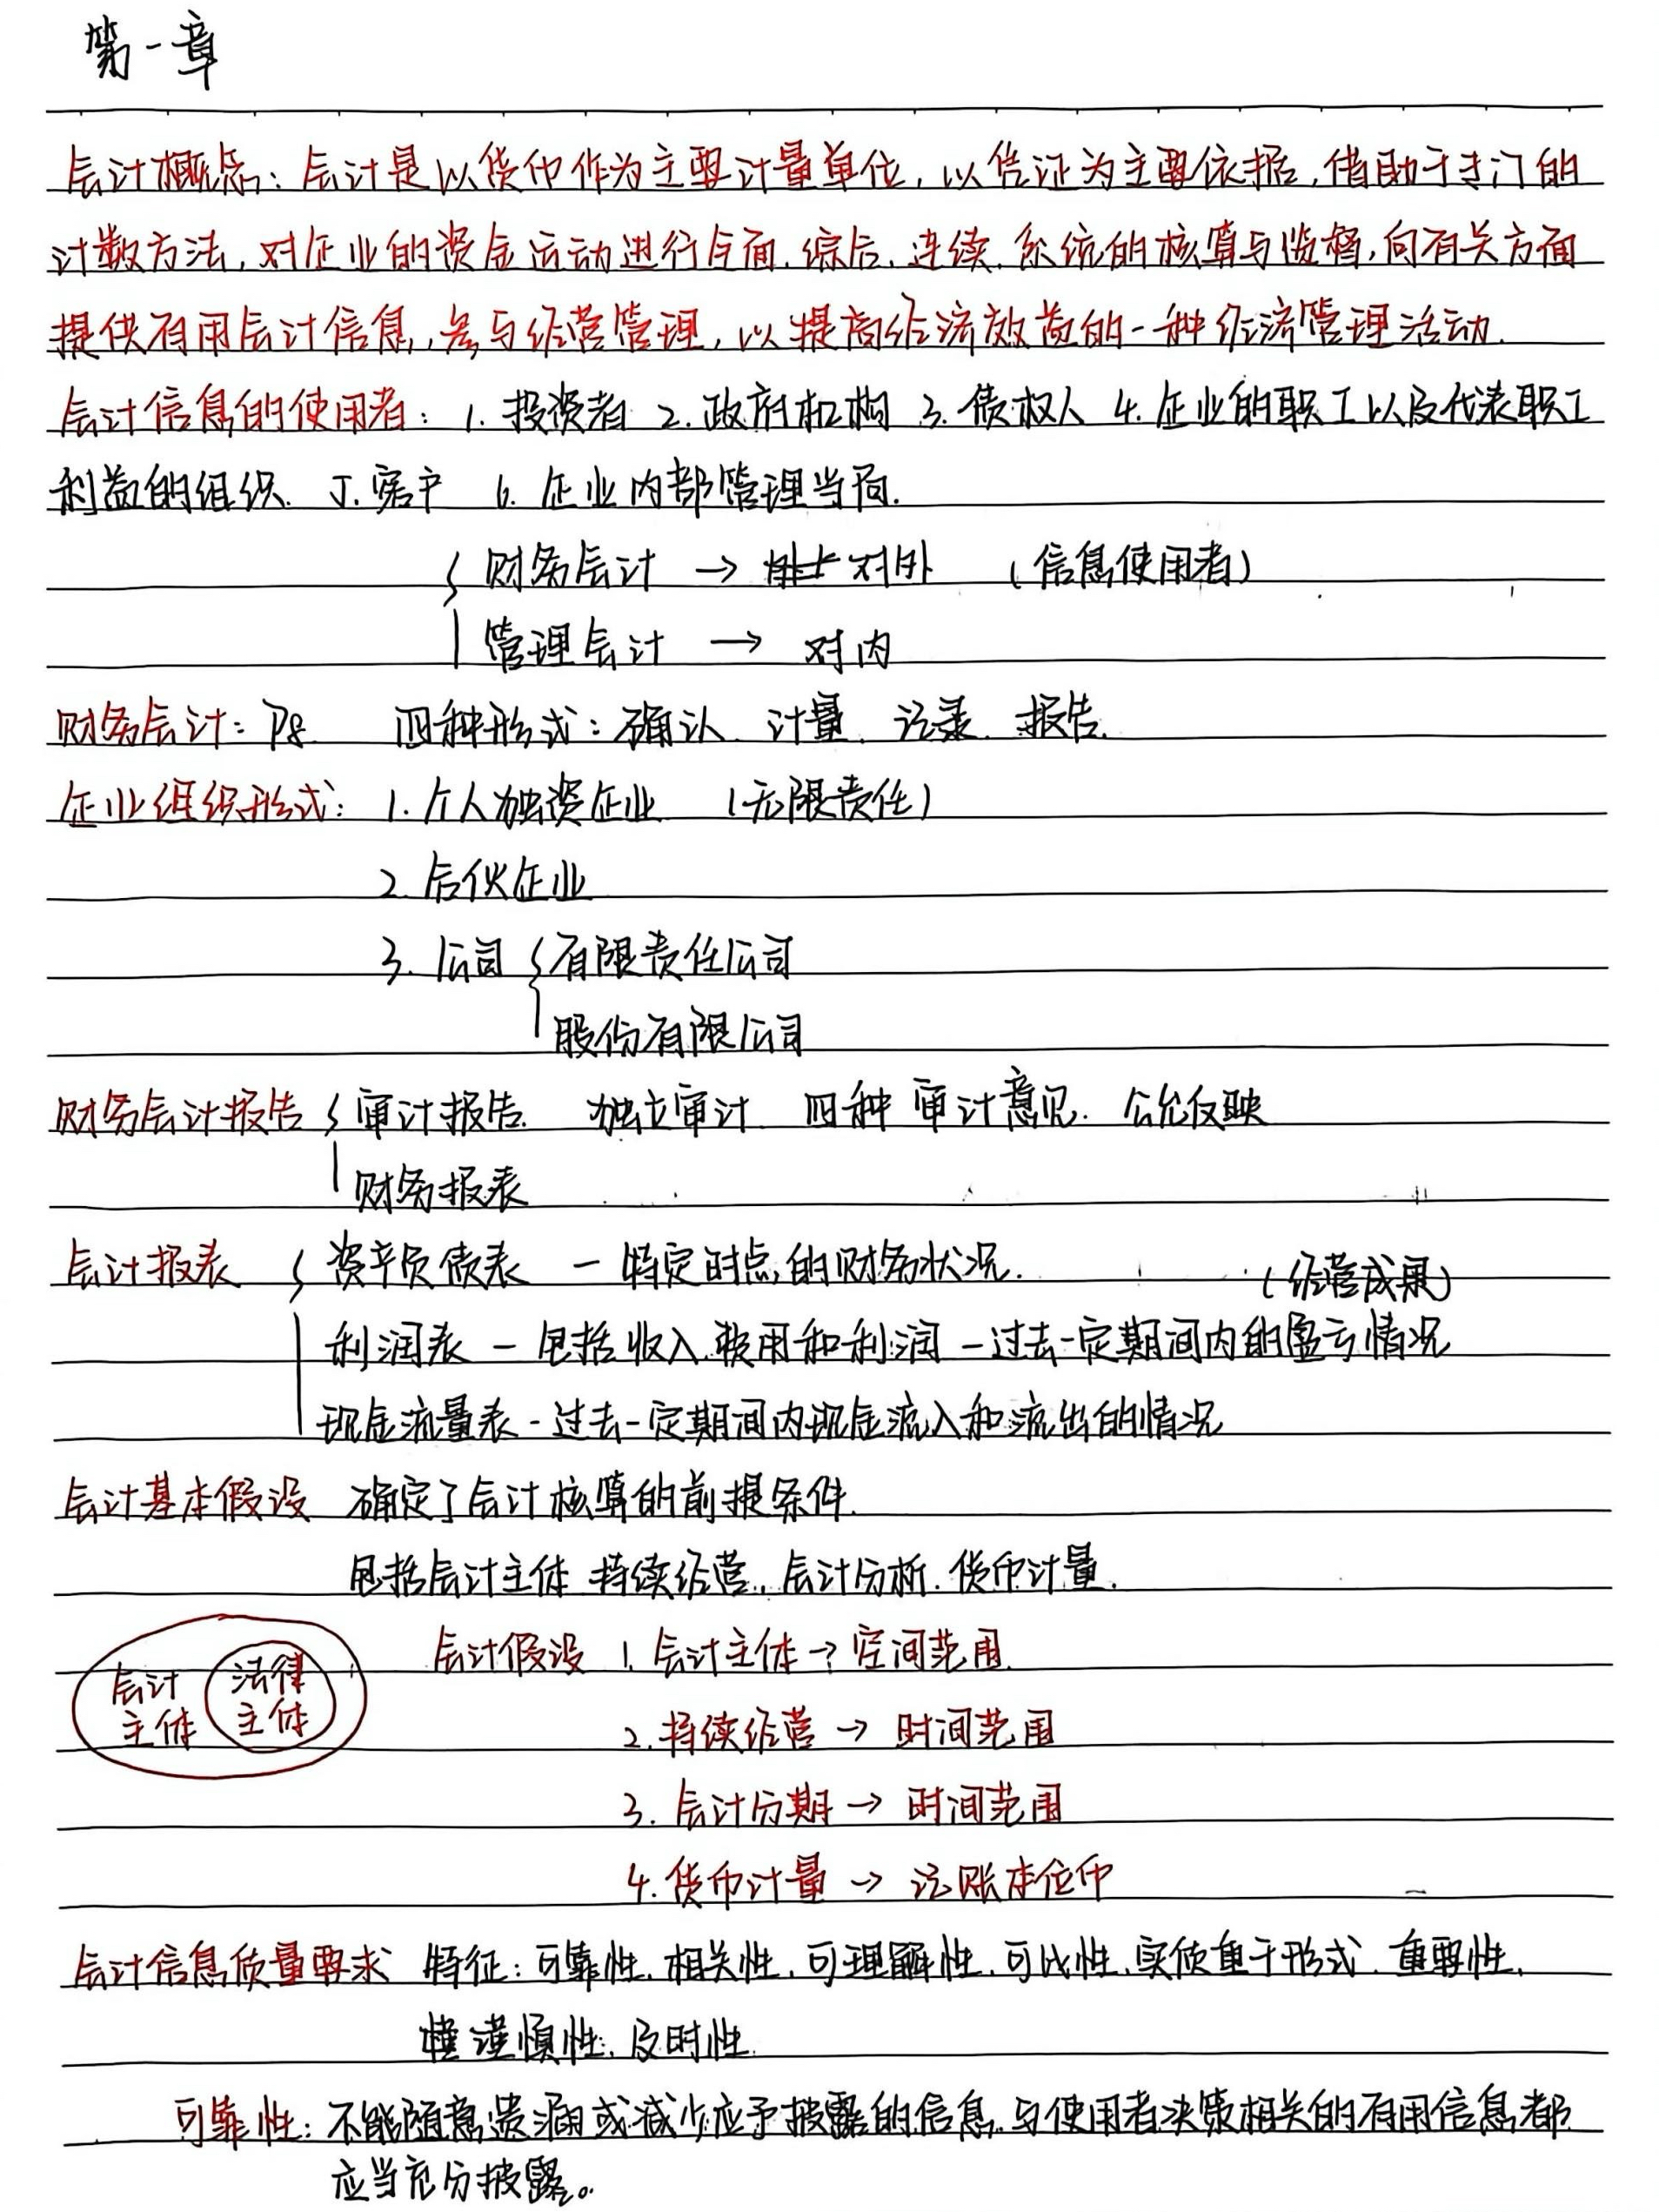 第一章
会计概念：会计是以货币作为主要计量单位，以凭证为主要依据，借助于专门的
计数方法，对企业的资金运动进行全面、综合、连续、系统的核算与监督，向有关方面
提供有用会计信息，参与经营管理，以提高经济效益的一种经济管理活动.
会计信息的使用者：1. 投资者 2. 政府机构 3. 债权人 4. 企业的职工以及代表职工
利益的组织. 5. 客户 6. 企业内部管理当局.
财务会计 → 对外 （信息使用者）
管理会计 → 对内
财务会计：P8 四种形式：确认、计量、记录、报告.
企业组织形式：1. 个人独资企业 （无限责任）
2. 合伙企业
3. 公司 { 有限责任公司
股份有限公司
财务会计报告 { 审计报告. 独立审计 四种审计意见. 公允反映
财务报表
会计报表 { 资产负债表 — 特定时点的财务状况.
（经营成果）
利润表 — 包括收入、费用和利润 — 过去一定期间内的盈亏情况
现金流量表 - 过去一定期间内现金流入和流出的情况
会计基本假设 确定了会计核算的前提条件.
包括会计主体 持续经营、会计分析、货币计量.
会计假设 1. 会计主体 → 空间范围.
会计主体 法律主体
2. 持续经营 → 时间范围
3. 会计分期 → 时间范围
4. 货币计量 → 记账本位币
会计信息质量要求 特征：可靠性、相关性、可理解性、可比性、实质重于形式、重要性、
谨慎性、及时性.
可靠性：不能随意遗漏或减少应予披露的信息，与使用者决策相关的有用信息都
应当充分披露。